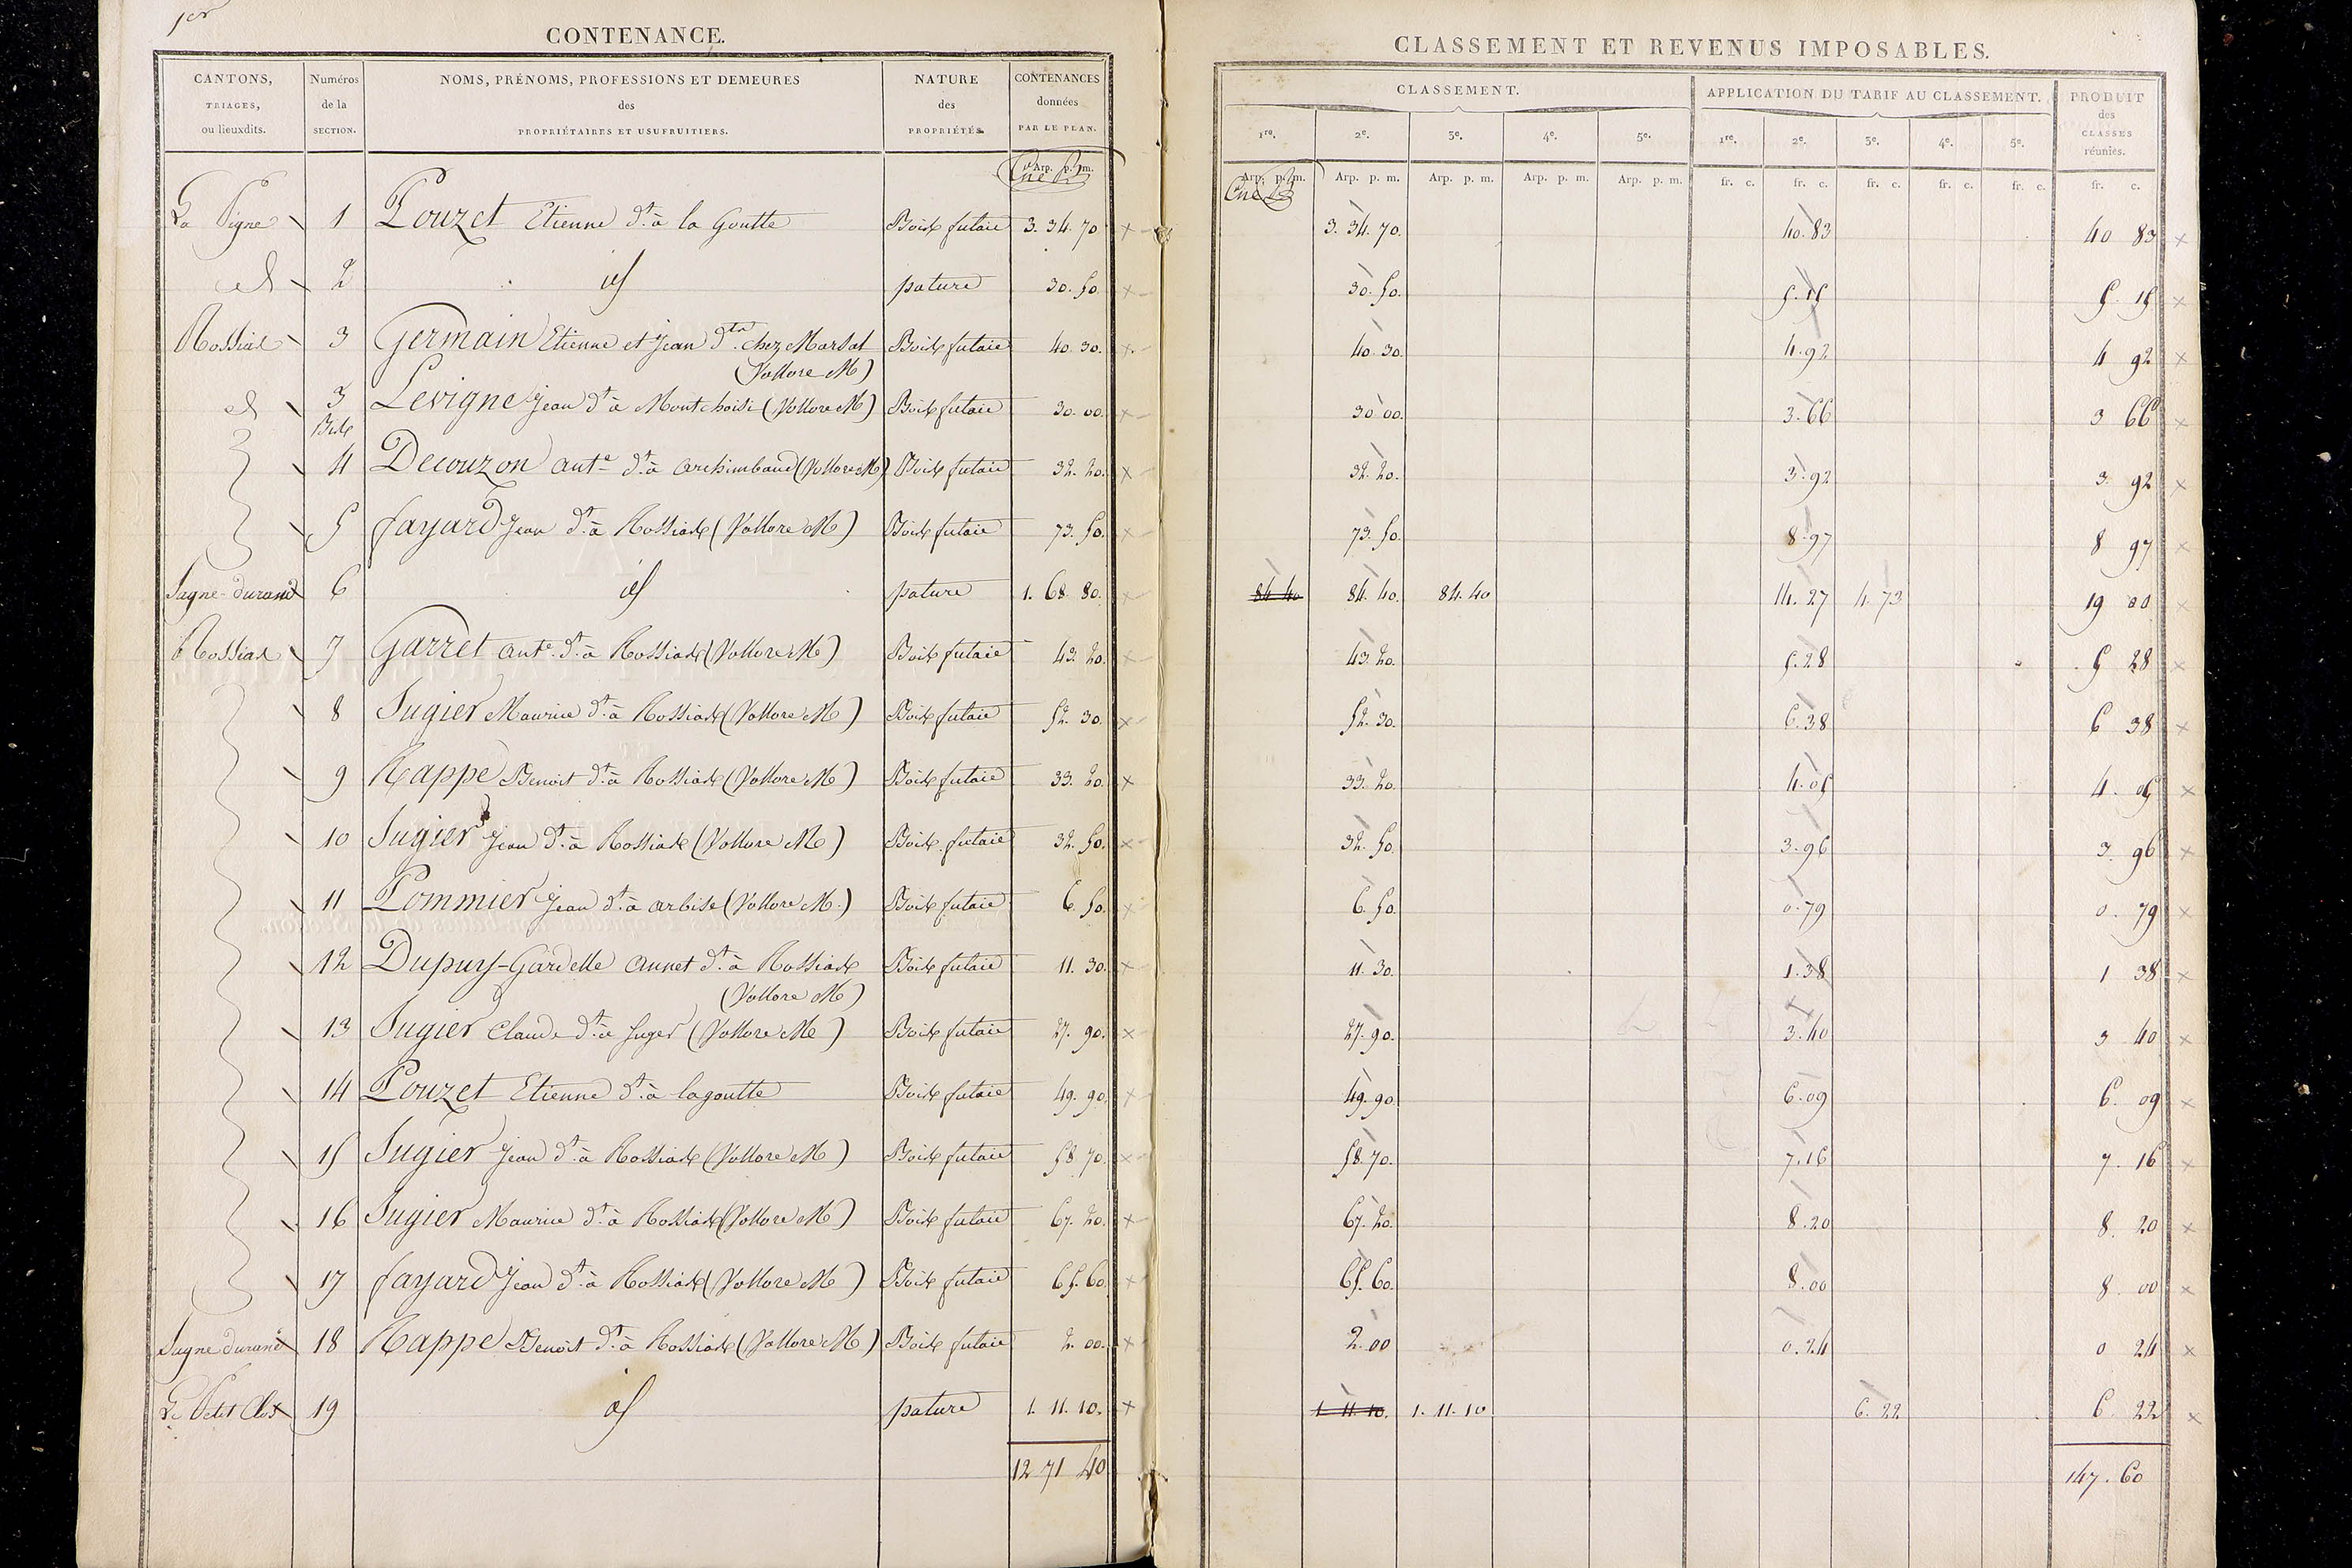 1er
CONTENANCE.
CANTONS, TRIAGES, ou lieuxdits.
Numéros de la SECTION.
NOMS, PRÉNOMS, PROFESSIONS ET DEMEURES des PROPRIÉTAIRES ET USUFRUITIERS.
NATURE des PROPRIÉTÉS.
CONTENANCES données PAR LE PLAN.
Arp. p. m.
La Vigne 1 Pouzet Etienne dt. à la Goutte Bois futaie 3. 34. 70
id 2 id pature 30. 50.
Rossias 3 Germain Etienne et Jean dts. chez Marsat Bois futaie 40. 30.
(Vollore M)
id 3 Levigne Jean dt à Montchoisi (Vollore M) Bois futaie 30. 00.
Bis
4 Decouzon Ante. dt. à Archimbaud (Vollore M) Bois futaie 32. 20.
5 fayard Jean dt. à Rossias (Vollore M) Bois futaie 73. 50.
Sagne-durand 6 id pature 1. 68. 80.
Rossias 7 Garret Ante. dt. à Rossias (Vollore M) Bois futaie 43. 20.
8 Sugier Maurice dt. à Rossias (Vollore M) Bois futaie 52. 30.
9 Rappe Benoit dt. à Rossias (Vollore M) Bois futaie 33. 20.
10 Sugier Jean dt. à Rossias (Vollore M) Bois futaie 32. 50.
11 Pommier Jean dt. à arbise (Vollore M.) Bois futaie 6. 50.
12 Dupuy-Gardelle Annet dt. à Rossias Bois futaie 11. 30.
(Vollore M)
13 Sugier Claude dt. à Suger (Vollore M) Bois futaie 27. 90.
14 Pouzet Etienne dt. à lagoutte Bois futaie 49. 90.
15 Sugier Jean dt. à Rossias (Vollore M) Bois futaie 58. 70.
16 Sugier Maurice dt. à Rossias (Vollore M) Bois futaie 67. 20.
17 fayard Jean dt. à Rossias (Vollore M) Bois futaie 65. 60.
Sagne durand 18 Rappe Benoit dt. à Rossias (Vollore M) Bois futaie 2. 00.
Le Petit Clos 19 id pature 1. 11. 10.
12 71 40
CLASSEMENT ET REVENUS IMPOSABLES.
CLASSEMENT.
APPLICATION DU TARIF AU CLASSEMENT.
PRODUIT des CLASSES réunies.
1re. 2e. 3e. 4e. 5e. 1re. 2e. 3e. 4e. 5e.
Arp. p. m. Arp. p. m. Arp. p. m. Arp. p. m. Arp. p. m. fr. c. fr. c. fr. c. fr. c. fr. c. fr. c.
3. 34. 70. 40. 83 40 83
30. 50. 5. 15 5. 15
40. 30. 4. 92 4 92
30 00. 3. 66 3 66
32. 20. 3. 92 3. 92
73. 50. 8. 97 8 97
84 40 84. 40. 84. 40 14. 27 4. 73 19 00
43. 20. 5. 28 5 28
52. 30. 6. 38 6 38
33. 20. 4. 05 4. 05
32. 50. 3. 96 3. 96
6. 50. 0. 79 0. 79
11. 30. 1. 38 1 38
27. 90. 3. 40 3 40
49. 90 6. 09 6. 09
58. 70. 7. 16 7. 16
67. 20. 8. 20 8. 20
65. 60. 8. 00 8. 00
2. 00 0. 24 0 24
1. 11. 10. 1. 11. 10 6. 22 6 22
147. 60